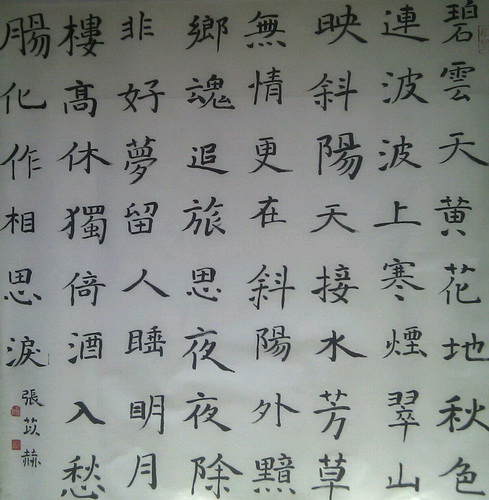 碧雲天黄花地秋色
連波波上寒煙翠山
映斜陽天接水芳草
無情更在斜陽外黯
鄉魂追旅思夜夜除
非好夢留人睡明月
樓高休獨倚酒入愁
腸化作相思淚
張苡赫